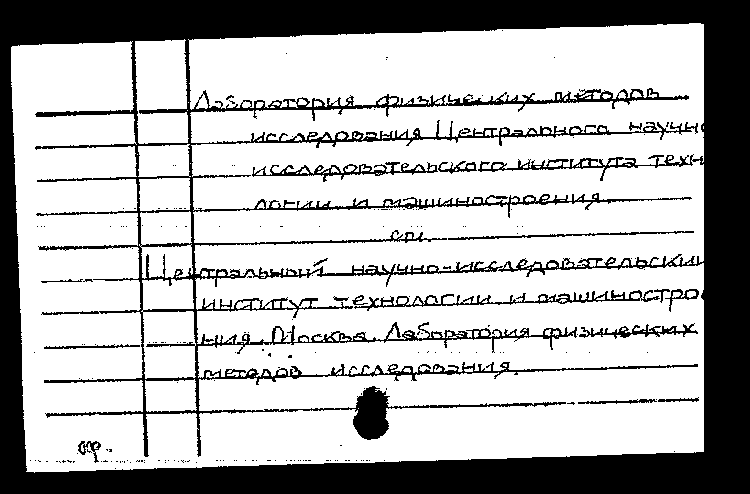 Лаборатория физических методов
исследования Центрального научно
исследовательского института техн
логии и машиностроения.
см.
Центральный научно-исследовательский
институт технологии и машинострое
ния. Москва. Лаборатория физических
методов исследования.